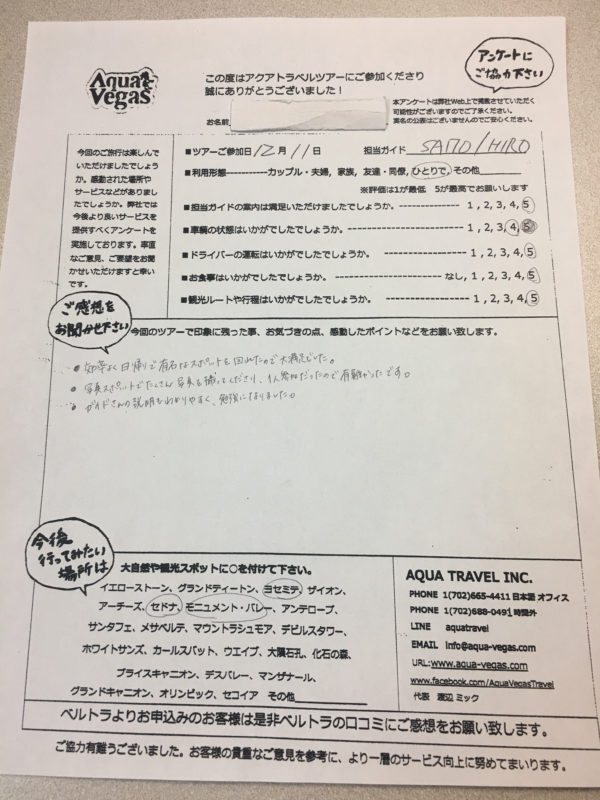 Aqua Vegas
この度はアクアトラベルツアーにご参加くださり
誠にありがとうございました！
アンケートに
ご協力下さい
お名前
本アンケートは弊社Web上で掲載させていただく
可能性がございますのでご了承ください。
実名の公表はございませんのでご安心ください。
今回のご旅行は楽しんで
いただけましたでしょう
か。感動された場所や
サービスなどがありまし
たでしょうか。弊社では
今後より良いサービスを
提供すべくアンケートを
実施しております。率直
なご意見、ご要望をお聞
かせいただけますと幸い
です。
■ツアーご参加日12月11日 担当ガイド SAITO/HIRO
■利用形態-----------カップル・夫婦, 家族, 友達・同僚, ひとりで, その他
※評価は1が最低 5が最高でお願いします
■担当ガイドの案内は満足いただけましたでしょうか。 ------------ 1, 2, 3, 4, 5
■車輌の状態はいかがでしたでしょうか。 ------------------ 1, 2, 3, 4, 5
■ドライバーの運転はいかがでしたでしょうか。 ---------------- 1, 2, 3, 4, 5
■お食事はいかがでしたでしょうか。 ------------------ なし, 1, 2, 3, 4, 5
■観光ルートや行程はいかがでしたでしょうか。 ---------------- 1, 2, 3, 4, 5
ご感想を
お聞かせ下さい
今回のツアーで印象に残った事、お気づきの点、感動したポイントなどをお願い致します。
● 効率よく日帰りで有名なスポットを回れたので大満足でした。
● 写真スポットでたくさん写真を撮ってくださり、1人参加だったので有難かったです。
● ガイドさんの説明もわかりやすく、勉強になりました。
今後
行ってみたい
場所は
大自然や観光スポットに○を付けて下さい。
イエローストーン、グランドティートン、ヨセミテ、ザイオン、
アーチーズ、セドナ、モニュメント・バレー、アンテロープ、
サンタフェ、メサベルテ、マウントラシュモア、デビルスタワー、
ホワイトサンズ、カールスバット、ウエイブ、大隕石孔、化石の森、
ブライスキャニオン、デスバレー、マンザナール、
グランドキャニオン、オリンピック、セコイア その他
AQUA TRAVEL INC.
PHONE 1(702)665-4411 日本語 オフィス
PHONE 1(702)688-0491 時間外
LINE aquatravel
EMAIL info@aqua-vegas.com
URL:www.aqua-vegas.com
www.facebook.com/AquaVegasTravel
代表 渡辺 ミック
ベルトラよりお申込みのお客様は是非ベルトラの口コミにご感想をお願い致します。
ご協力有難うございました。お客様の貴重なご意見を参考に、より一層のサービス向上に努めてまいります。